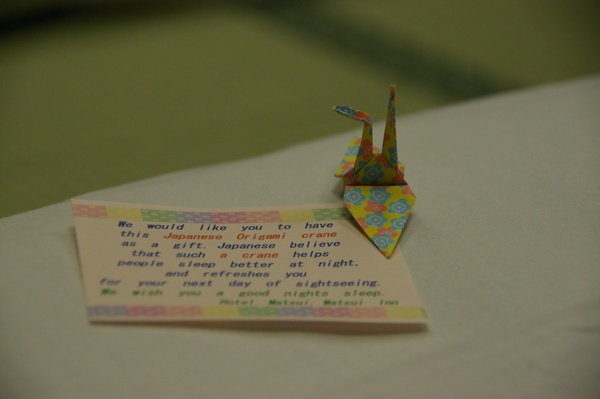 We would like you to have
this Japanese Origami crane
as a gift. Japanese believe
that such a crane helps
people sleep better at night.
and refreshes you
for your next day of sightseeing.
We wish you a good nights sleep.
Hotel Matsui, Matsui Inn